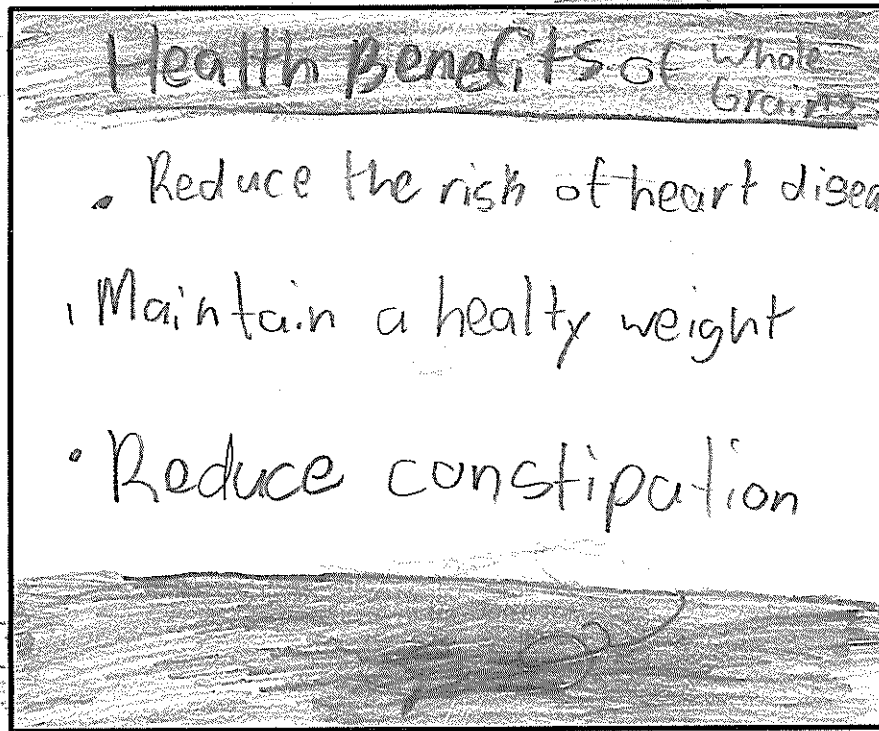 Health Benefits of Whole
Grains
• Reduce the risk of heart disea
• Maintain a healty weight
• Reduce constipation